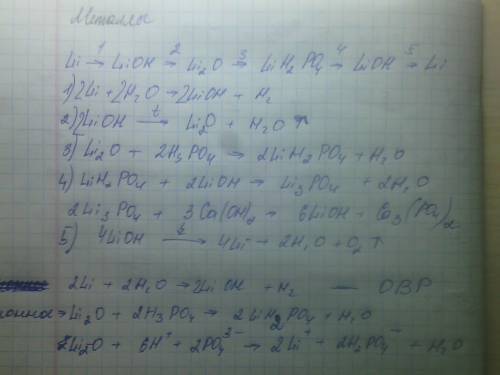 Металлы
Li →1 LiOH →2 Li₂O →3 LiH₂PO₄ →4 LiOH →5 Li
1) 2Li + 2H₂O → 2LiOH + H₂
2) 2LiOH →t Li₂O + H₂O ↑
3) Li₂O + 2H₃PO₄ → 2LiH₂PO₄ + H₂O
4) LiH₂PO₄ + 2LiOH → Li₃PO₄ + 2H₂O
2Li₃PO₄ + 3Ca(OH)₂ → 6LiOH + Ca₃(PO₄)₂
5) 4LiOH →t 4Li + 2H₂O + O₂ ↑
2Li + 2H₂O → 2LiOH + H₂ — ОВР
Li₂O + 2H₃PO₄ → 2LiH₂PO₄ + H₂O
Li₂O + 6H⁺ + 2PO₄³⁻ → 2Li⁺ + 2H₂PO₄⁻ + H₂O